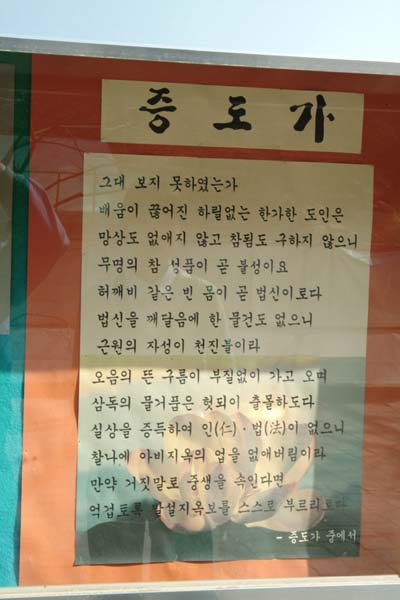 증도가
그대 보지 못하였는가
배움이 끊어진 하릴없는 한가한 도인은
망상도 없애지 않고 참됨도 구하지 않으니
무명의 참 성품이 곧 불성이요
허깨비 같은 빈 몸이 곧 법신이로다
법신을 깨달음에 한 물건도 없으니
근원의 자성이 천진불이라
오음의 뜬 구름이 부질없이 가고 오며
삼독의 물거품은 헛되이 출몰하도다
실상을 증득하여 인(仁)·법(法)이 없으니
찰나에 아비지옥의 업을 없애버림이라
만약 거짓말로 중생을 속인다면
억겁토록 발설지옥보를 스스로 부르리로다
- 증도가 중에서